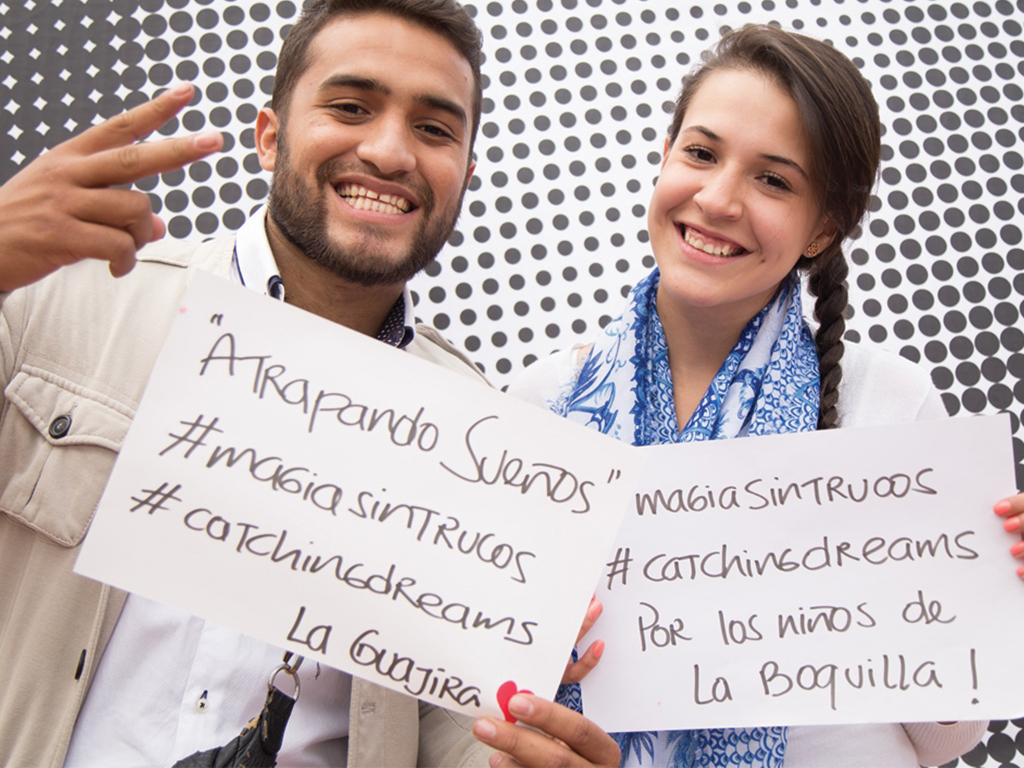 "ATRAPANDO SUEÑOS"
#MAGIASINTRUCOS
#CATCHINGDREAMS
LA GUAJIRA
MAGIASINTRUCOS
#CATCHINGDREAMS
POR LOS NIÑOS DE
LA BOQUILLA!